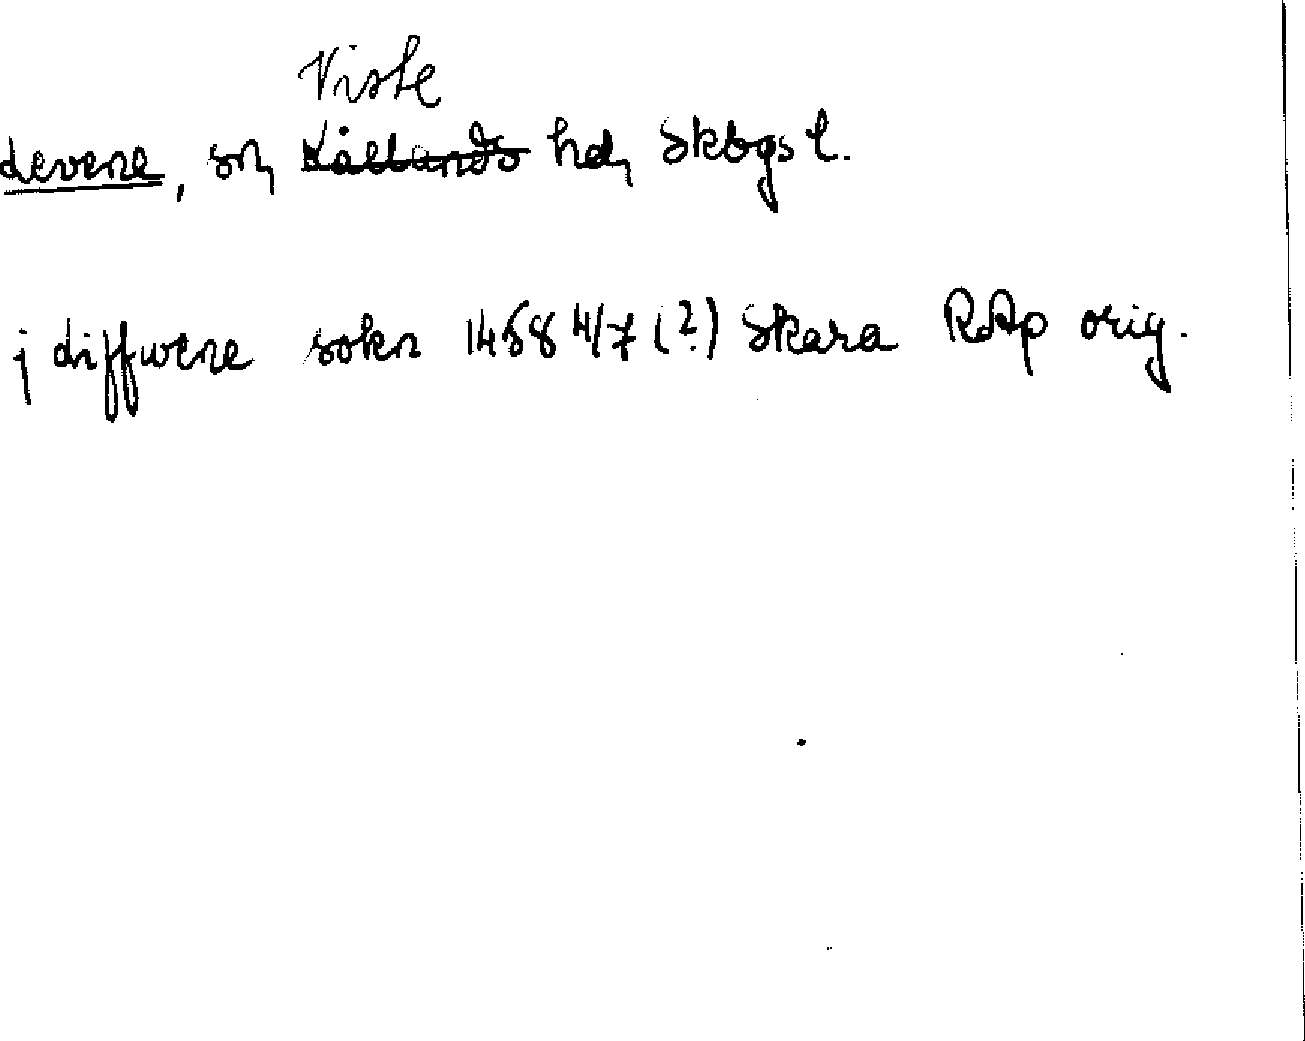 Viste
Levene, sn, Kållands hd, Skbgs l.
j liffwene sokn 1458 4/7 (?) Skara RAp orig.